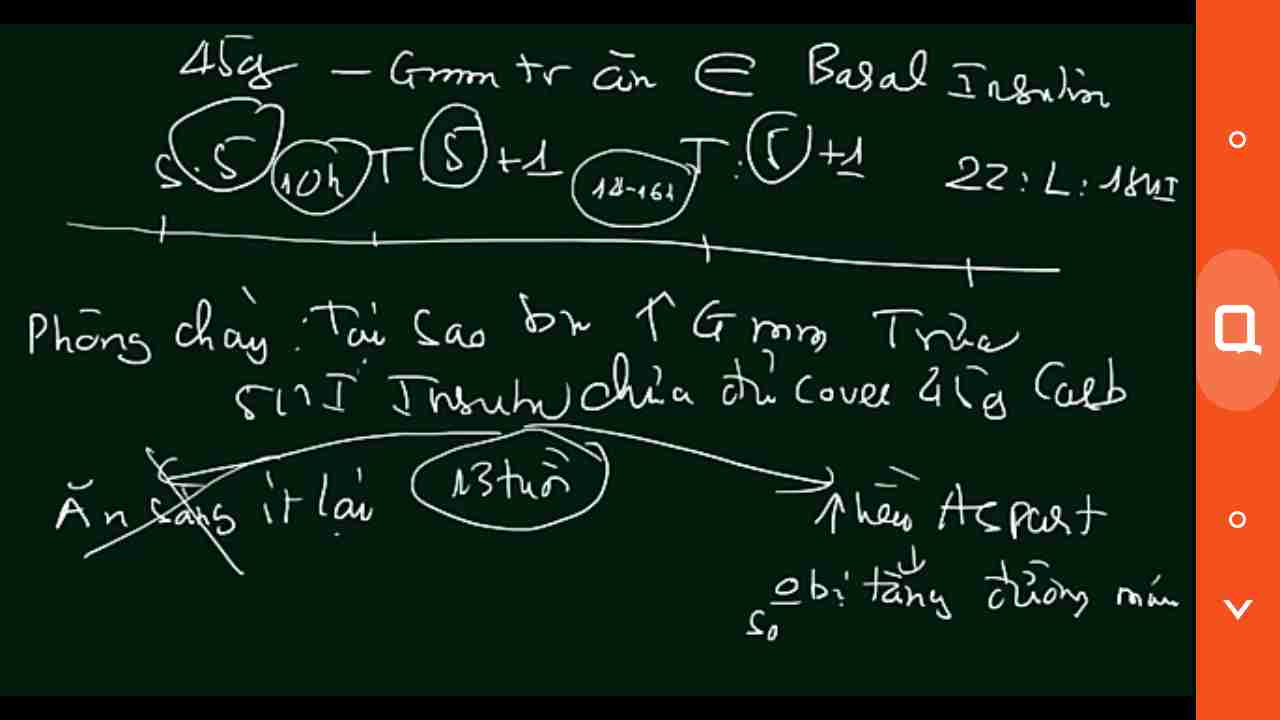 45g – Gmm tr ăn ∈ Basal Insulin
S: 5 10h T 5 +1 14-16h T: 5 +1 22: L: 18UI
Phòng chày: Tại sao bn ↑ Gmm Trưa
5UI Insulin chưa đủ cover 45g Carb
Ăn sáng ít lại 13 tuổi ↑ liều Aspart
so bị tăng đường máu